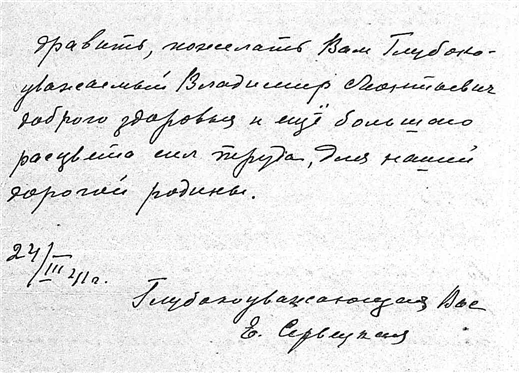 дравить, пожелать Вам Глубоко-
уважаемый Владимир Леонтьевич
доброго здоровья и ещё большого
расцвета сил труда, для нашей
дорогой родины.
24/III 41г.
Глубокоуважающая Вас
Е. Сервецкая